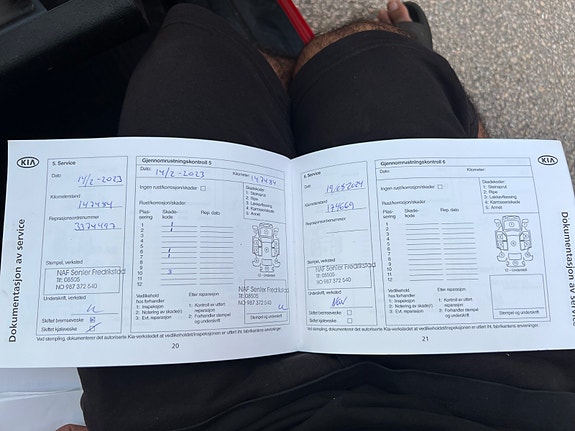 KIA
Dokumentasjon av service
5. Service
Dato
14/2-2023
Kilometerstand
147484
Reparasjonsordrenummer
3374497
Stempel, verksted
NAF Senter Fredrikstad
Tlf: 08505
NO 987 372 540
Underskrift, verksted
Skiftet bremsevæske
Skiftet kjølevæske
Gjennomrustningskontroll 5
Dato: 14/2-2023
Kilometer: 147484
Ingen rust/korrosjon/skader
Rust/korrosjon/skader
Plas- Skade- Rep. dato
sering kode
1
2
3
4
5
6
7
8
9
10 3
11
12
Skadekoder:
1: Steinsprut
2: Ripe
3: Lakkavflassing
4: Karosseriskade
5: Annet
13 - Underside
NAF Senter Fredrikstad
Tlf: 08505
NO 987 372 540
Vedlikehold Etter reparasjon
hos forhandler
1: Inspeksjon 1: Kontroll av utført
2: Notering av skade(r) reparasjon
3: Evt. reparasjon 2: Forhandler stempel
og underskrift
Stempel og underskrift
Ved stempling, dokumenterer det autoriserte Kia-verkstedet at vedlikeholdet/inspeksjonen er utført iht. fabrikantens anvisninger.
20
6. Service
Dato
Kilometerstand
179669
Reparasjonsordrenummer
Stempel, verksted
NAF Senter Fredrikstad
Tlf: 08505
NO 987 372 540
Underskrift, verksted
Skiftet bremsevæske
Skiftet kjølevæske
Gjennomrustningskontroll 6
Dato:
Kilometer:
Ingen rust/korrosjon/skader
Rust/korrosjon/skader
Plas- Skade- Rep. dato
sering kode
1
2
3
4
5
6
7
8
9
10
11
12
Skadekoder:
1: Steinsprut
2: Ripe
3: Lakkavflassing
4: Karosseriskade
5: Annet
13 - Underside
Vedlikehold Etter reparasjon
hos forhandler
1: Inspeksjon 1: Kontroll av utført
2: Notering av skade(r) reparasjon
3: Evt. reparasjon 2: Forhandler stempel
og underskrift
Stempel og underskrift
Ved stempling, dokumenterer det autoriserte Kia-verkstedet at vedlikeholdet/inspeksjonen er utført iht. fabrikantens anvisninger.
21
KIA
Dokumentasjon av service